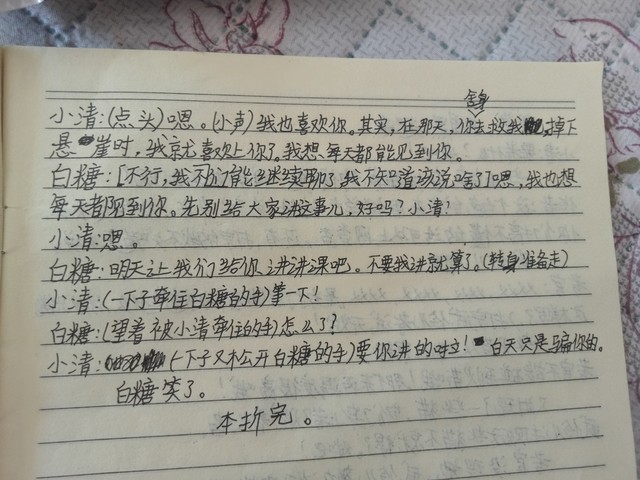 小清:(点头)嗯。(小声)我也喜欢你。其实,在那天,你舍身去救我,掉下
悬崖时,我就喜欢上你了。我想每天都能见到你。
白糖:[不行,我不们能继续聊了,我不知道该说啥了]嗯,我也想
每天都见到你。先别给大家讲这事儿,好吗?小清?
小清:嗯。
白糖:明天让我们给你讲讲课吧。不要我讲就算了。(转身准备走)
小清:(一下子牵住白糖的手)等一下!
白糖:(望着被小清牵住的手)怎么了?
小清:(一下子又松开白糖的手)要你讲的啦!白天只是骗你的。
白糖笑了。
本折完。